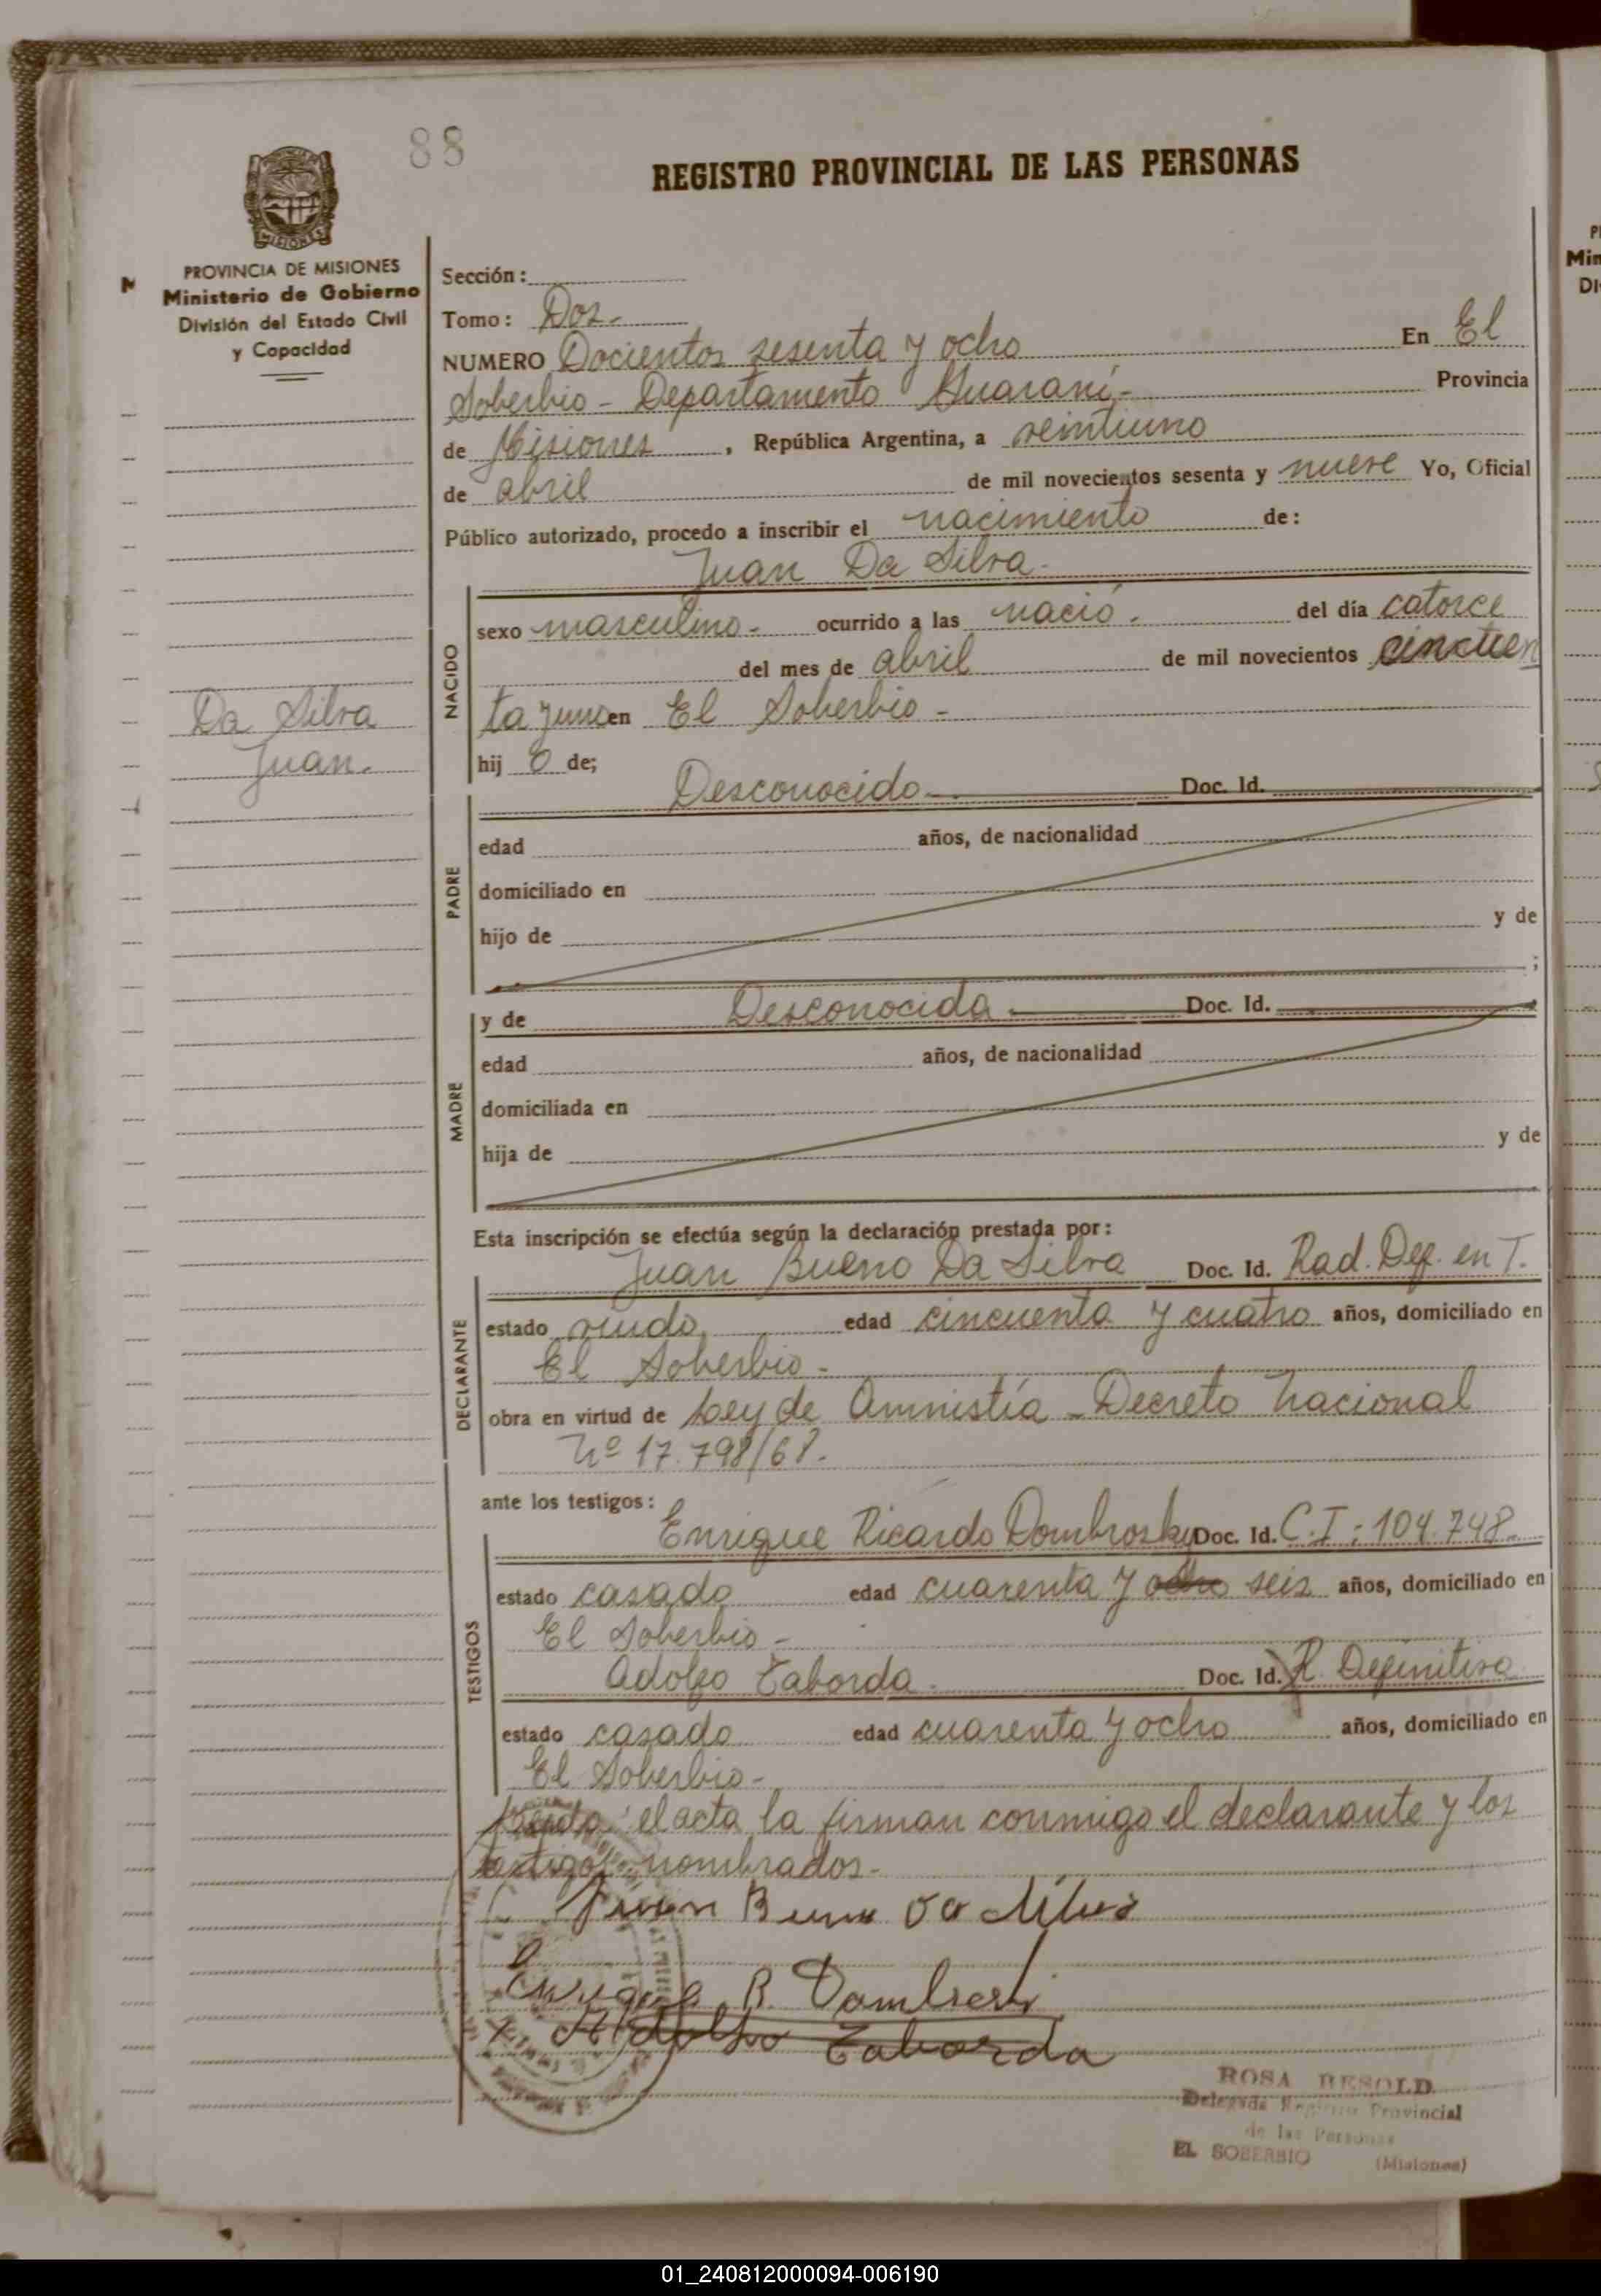 88
REGISTRO PROVINCIAL DE LAS PERSONAS
MISIONES
PROVINCIA DE MISIONES
Ministerio de Gobierno
División del Estado Civil
y Capacidad
Sección:
Tomo: Dos.-
NUMERO Docientos sesenta y ocho En El
Soberbio - Departamento Guaraní.- Provincia
de Misiones, República Argentina, a veintiuno
de abril de mil novecientos sesenta y nueve Yo, Oficial
Público autorizado, procedo a inscribir el nacimiento de:
Juan Da Silva.
NACIDO
sexo masculino.- ocurrido a las nació. del día catorce
del mes de abril de mil novecientos cincuen
ta y uno en El Soberbio -
hij o de;
Da Silva
Juan.
PADRE
Desconocido Doc. Id.
edad años, de nacionalidad
domiciliado en
hijo de y de
;
MADRE
y de Desconocida Doc. Id.
edad años, de nacionalidad
domiciliada en
hija de y de
Esta inscripción se efectúa según la declaración prestada por:
DECLARANTE
Juan Bueno Da Silva Doc. Id. Rad. Def. en T.
estado viudo edad cincuenta y cuatro años, domiciliado en
El Soberbio -
obra en virtud de Ley de Amnistía - Decreto Nacional
Nº 17.798/68.
ante los testigos:
TESTIGOS
Enrique Ricardo Dombrosky Doc. Id. C.I: 104.748.
estado casado edad cuarenta y ocho seis años, domiciliado en
El Soberbio -
Adolfo Taborda. Doc. Id. R. Definitiva
estado casado edad cuarenta y ocho años, domiciliado en
El Soberbio -
Leída el acta la firman conmigo el declarante y los
testigos nombrados.-
Juan Bueno da Silva
Enrique R. Dombroski
Adolfo Taborda
ROSA RESOLD
Delegada Registro Provincial
de las Personas
EL SOBERBIO (Misiones)
01_240812000094-006190